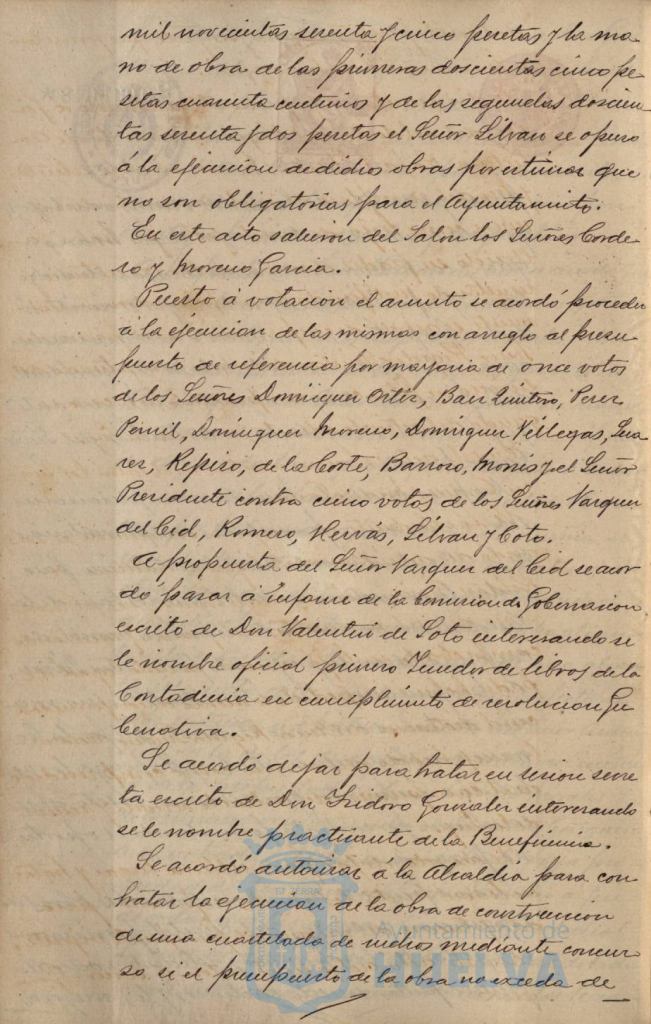 mil novecientas serenta y cinco pesetas y la ma-
no de obra de las primeras doscientas cinco pe-
setas cuarenta centimos y de las segundas doscien-
tas serenta y dos pesetas el Señor Silvan se opuso
á la ejecucion de dichas obras por estimar que
no son obligatorias para el Ayuntamiento.
En este acto salieron del Salon los Señores Corde-
ro y Moreno Garcia.
Puesto á votacion el asunto se acordó proceder
á la ejecucion de las mismas con arreglo al presu-
puesto de referencia por mayoria de once votos
de los Señores Dominguez Ortiz, Baez Quintero, Perez
Pomil, Dominguez Moreno, Dominguez Villegas, Sua-
rez, Repiso, de la Corte, Barroso, Monis y el Señor
Presidente contra cinco votos de los Señores Vazquez
del Cid, Romero, Hervás, Silvan y Coto.
A propuesta del Señor Vazquez del Cid se acor-
dó pasar á informe de la Comision de Gobernacion
escrito de Don Valentin de Soto interesando se
le nombre oficial primero Tenedor de libros de la
Contaduria en cumplimiento de resolucion Gu-
bernativa.
Se acordó dejar para tratar en sesion secre-
ta escrito de Don Isidoro Gonzalez interesando
se le nombre practicante de la Beneficencia.
Se acordó autorizar á la Alcaldia para con-
tratar la ejecucion de la obra de construccion
de una cuartelada de nichos mediante concur-
so si el presupuesto de la obra no exceda de
Ayuntamiento de
HUELVA